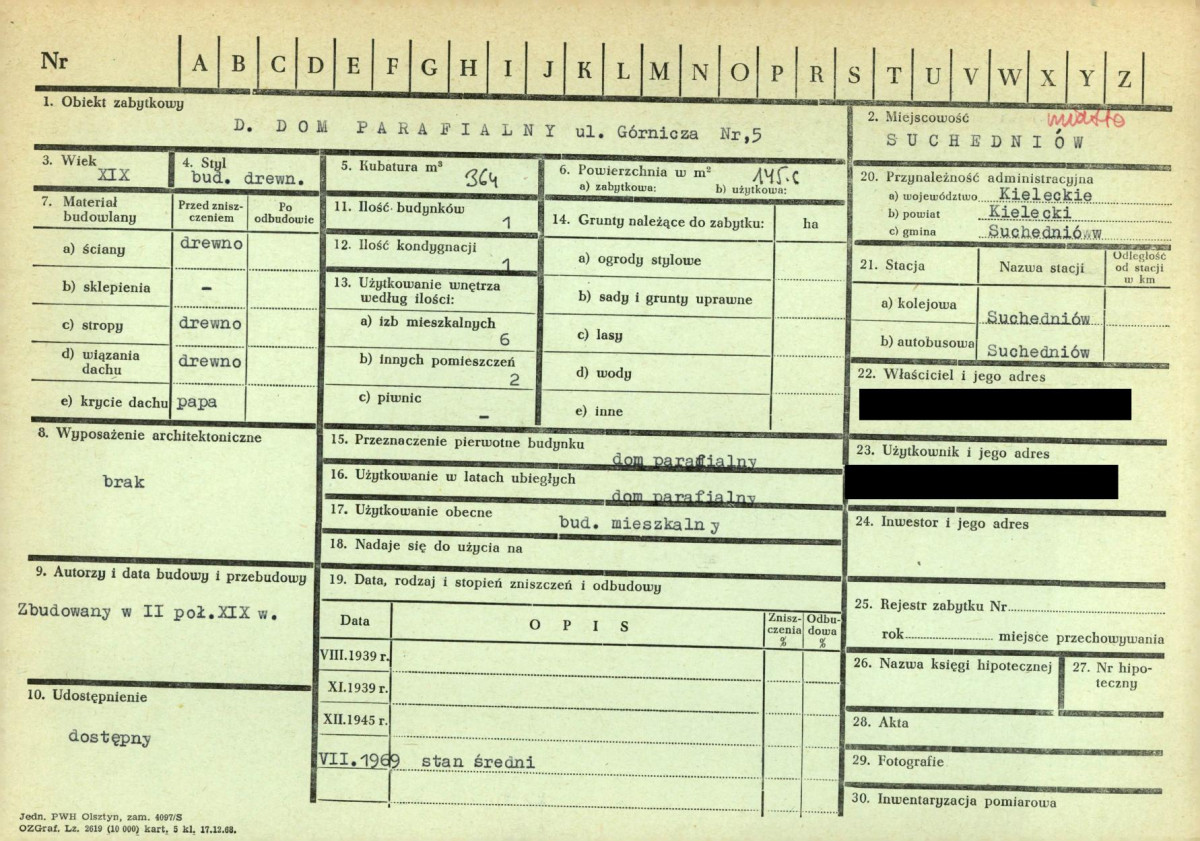 Nr A B C D E F G H I J K L M N O P R S T U V W X Y Z
1. Obiekt zabytkowy
D. DOM PARAFIALNY ul. Górnicza Nr,5
2. Miejscowość miasto
SUCHEDNIÓW
3. Wiek
XIX
4. Styl
bud. drewn.
5. Kubatura m³ 364
6. Powierzchnia w m² 145.
a) zabytkowa: b) użytkowa:
7. Materiał budowlany
Przed zniszczeniem
Po odbudowie
a) ściany drewno
b) sklepienia –
c) stropy drewno
d) wiązania dachu drewno
e) krycie dachu papa
8. Wyposażenie architektoniczne
brak
9. Autorzy i data budowy i przebudowy
Zbudowany w II poł.XIX w.
10. Udostępnienie
dostępny
11. Ilość budynków
1
12. Ilość kondygnacji
1
13. Użytkowanie wnętrza
według ilości:
a) izb mieszkalnych
6
b) innych pomieszczeń
2
c) piwnic
–
14. Grunty należące do zabytku: ha
a) ogrody stylowe
b) sady i grunty uprawne
c) lasy
d) wody
e) inne
15. Przeznaczenie pierwotne budynku
dom parafialny
16. Użytkowanie w latach ubiegłych
dom parafialny
17. Użytkowanie obecne
bud. mieszkalny
18. Nadaje się do użycia na
19. Data, rodzaj i stopień zniszczeń i odbudowy
Data OPIS Zniszczenia % Odbudowa %
VIII.1939 r.
XI.1939 r.
XII.1945 r.
VII.1969 stan średni
20. Przynależność administracyjna
a) województwo Kieleckie
b) powiat Kielecki
c) gmina Suchedniów w
21. Stacja Nazwa stacji Odległość od stacji w km
a) kolejowa Suchedniów
b) autobusowa Suchedniów
22. Właściciel i jego adres
23. Użytkownik i jego adres
24. Inwestor i jego adres
25. Rejestr zabytku Nr
rok miejsce przechowywania
26. Nazwa księgi hipotecznej
27. Nr hipoteczny
28. Akta
29. Fotografie
30. Inwentaryzacja pomiarowa
Jedn. PWH Olsztyn, zam. 4097/S
OZGraf. Lz. 2619 (10 000) kart. 5 kl. 17.12.68.